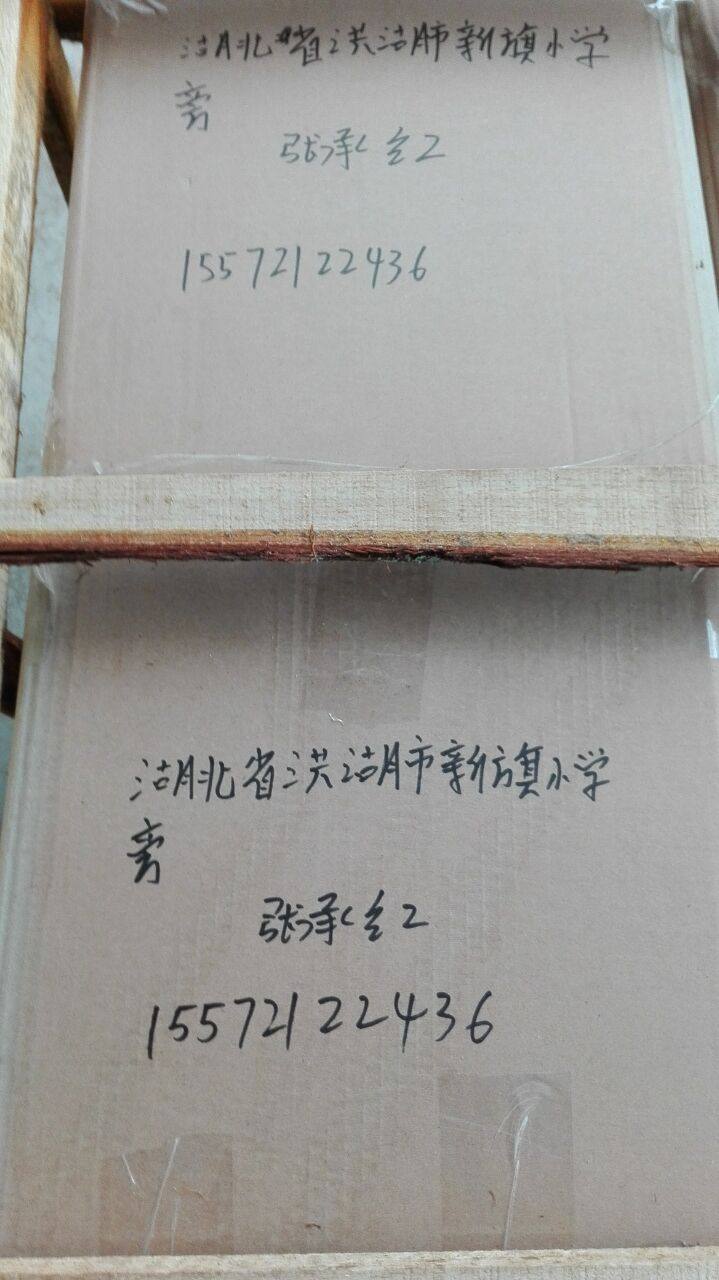 湖北省洪湖市新旗小学
旁
张承红
15572122436
湖北省洪湖市新旗小学
旁
张承红
15572122436